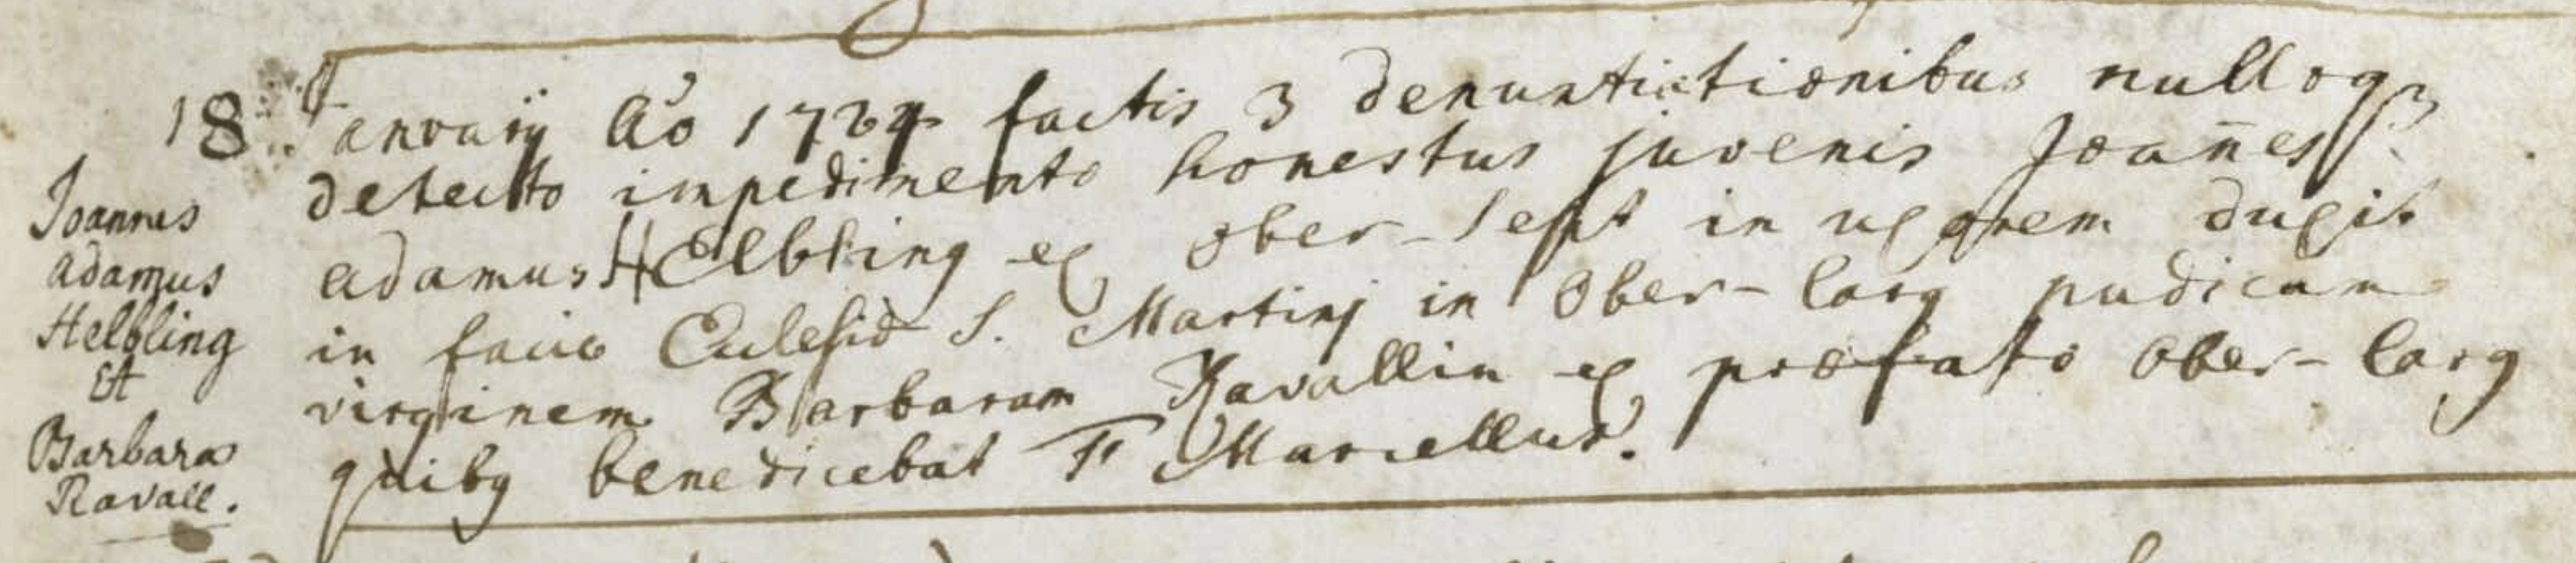 Joannes
Adamus
Helbling
Et
Barbara
Ravall.
18 Januarij Ao 1724 factis 3 denuntiationibus nulloqz
detecto impedimento honestus juvenis Joan̄es
adamus HElbling ex ober-sept in uxorem duxit
in facie Ecclesiæ S. Martinj in Ober-larg pudicam
virginem Barbaram Ravallin ex præfato Ober-larg
quibq benedicebat F Marcellus.